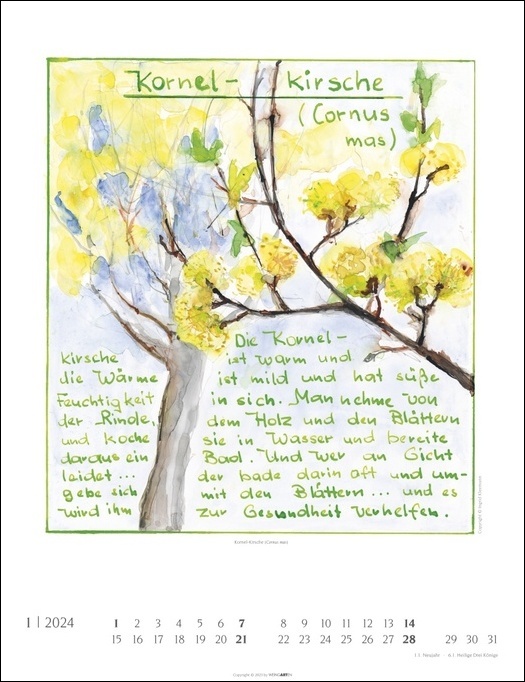 Kornel- Kirsche
(Cornus
mas)
Die Kornel-
kirsche ist warm und
die Wärme ist mild und hat süße
Feuchtigkeit in sich. Man nehme von
der Rinde, dem Holz und den Blättern
und koche sie in Wasser und bereite
daraus ein Bad. Und wer an Gicht
leidet... der bade darin oft und um-
gebe sich mit den Blättern... und es
wird ihm zur Gesundheit verhelfen.
Kornel-Kirsche (Cornus mas)
1 | 2024
1 2 3 4 5 6 7 8 9 10 11 12 13 14
15 16 17 18 19 20 21 22 23 24 25 26 27 28 29 30 31
1.1. Neujahr · 6.1. Heilige Drei Könige